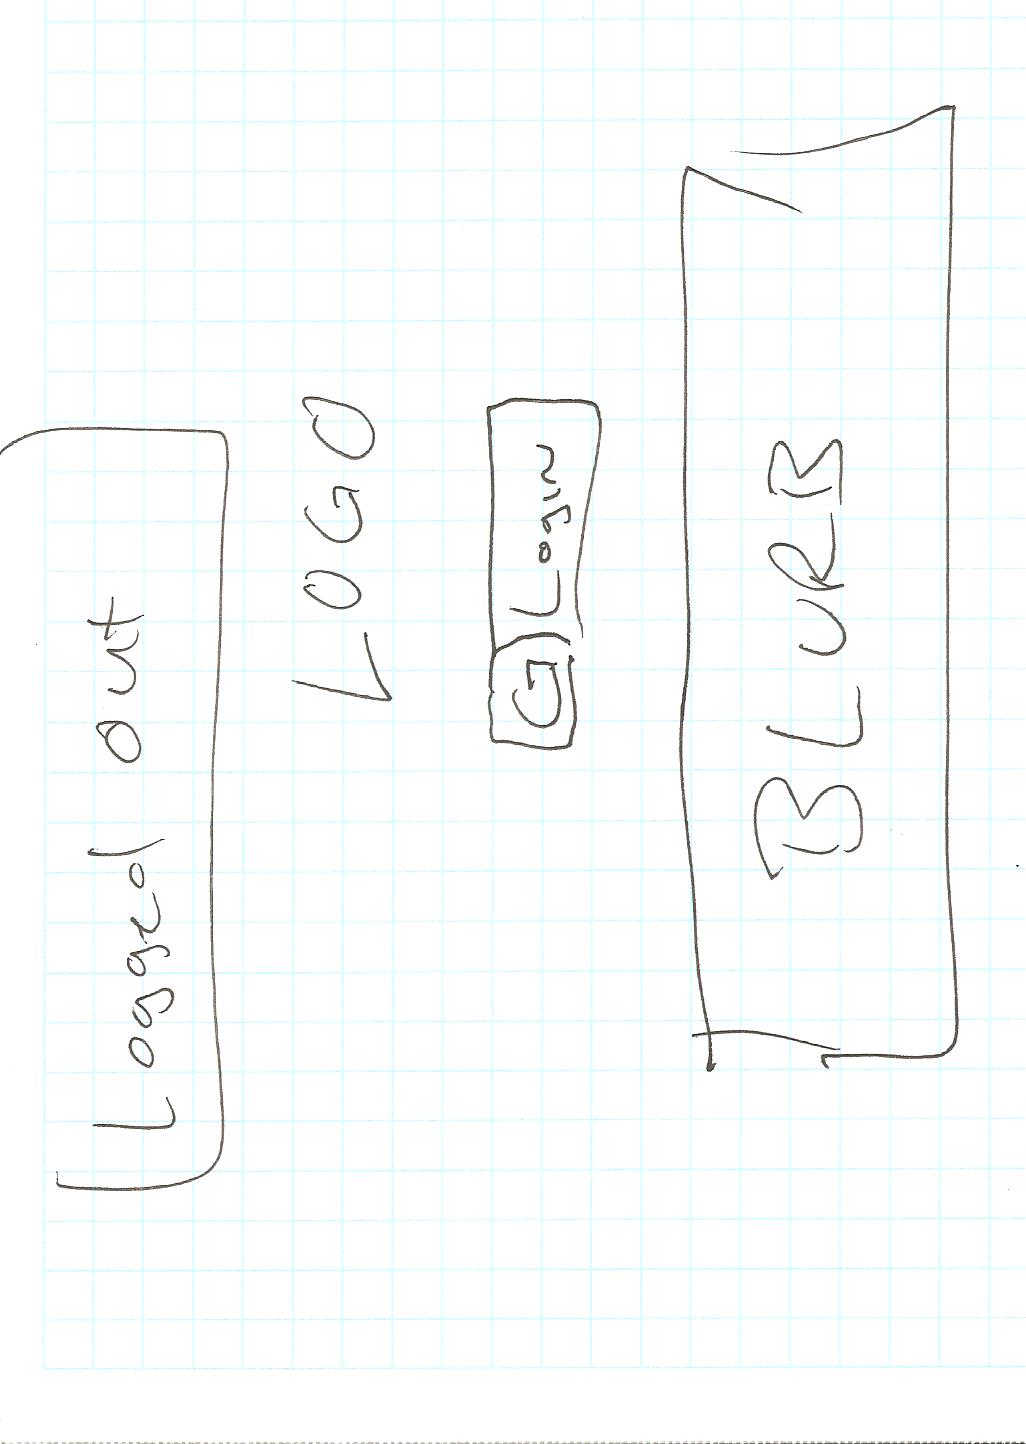 Logged out
LOGO
G Login
BLURB